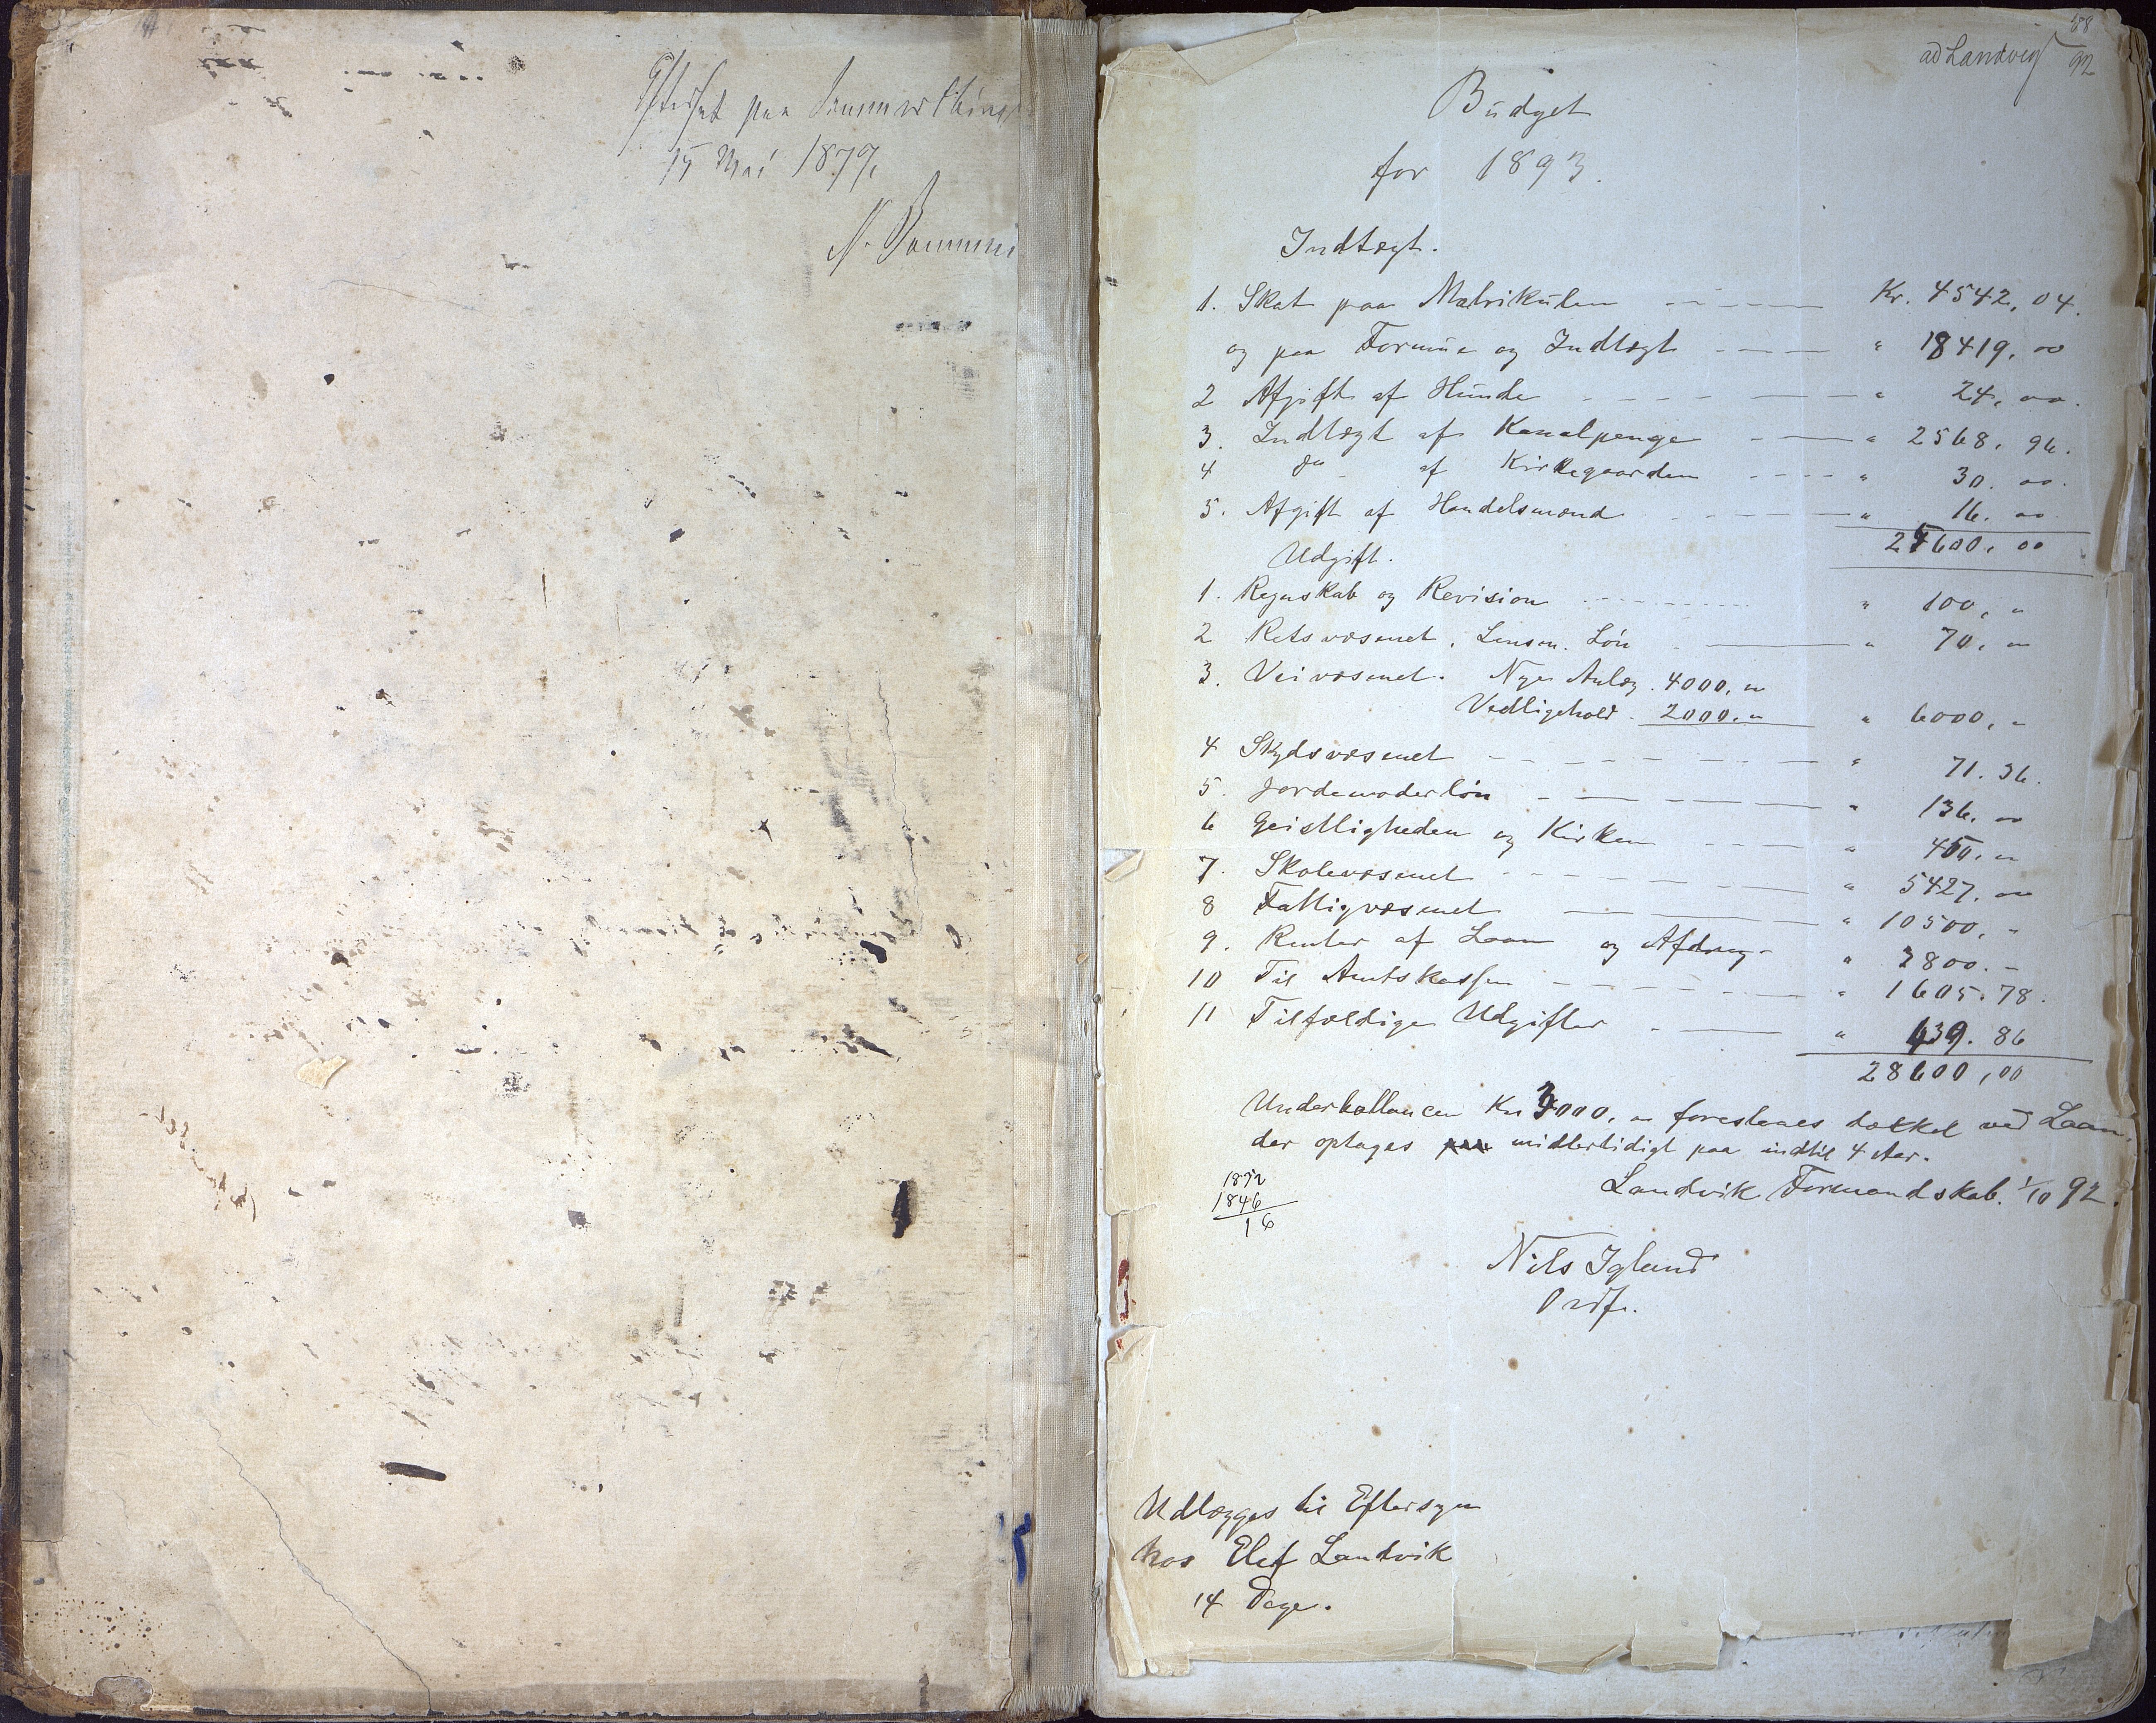 Efterset paa Sommerthing
15 Mai 1879.
ad Landvig 58/92
Budget
for 1893.
Indtægt.
1. Skat paa Matrikulen Kr. 4542,04.
og paa Formue og Indtægt " 18419,00
2 Afgift af Hunde " 24,00.
3. Indtægt af Kanalpenge " 2568,96.
4 Do af Kirkegaarden " 30.00.
5. Afgift af Handelsmænd " 16.00
25600,00
Udgift.
1. Regnskab og Revision " 100, "
2 Retsvæsenet, Lensm. Løn " 70, "
3. Veivæsenet. Nye Anlæg. 4000, "
Vedligehold. 2000. " " 6000, "
4 Skydsvæsenet " 71.36.
5. Jordemoderløn " 136.00
6 Geistligheden og Kirken " 450. "
7. Skolevæsenet " 5427,00
8 Fattigvæsenet " 10500, -
9. Renter af Laan og Afdrag " 3800. -
10 Til Amtskassen " 1605.78.
11 Tilfældige Udgifter " 439.86
28600,00
Underballancen Kr 3000, " foreslaaes dækket ved Laan,
der optages midlertidigt paa indtil 4 Aar.
1892
1846
16
Landvik Formandskab. 1/10 92.
Nils Igland
Ordf.
Udlægges til Eftersyn
hos Elef Landvik
14 Dage.